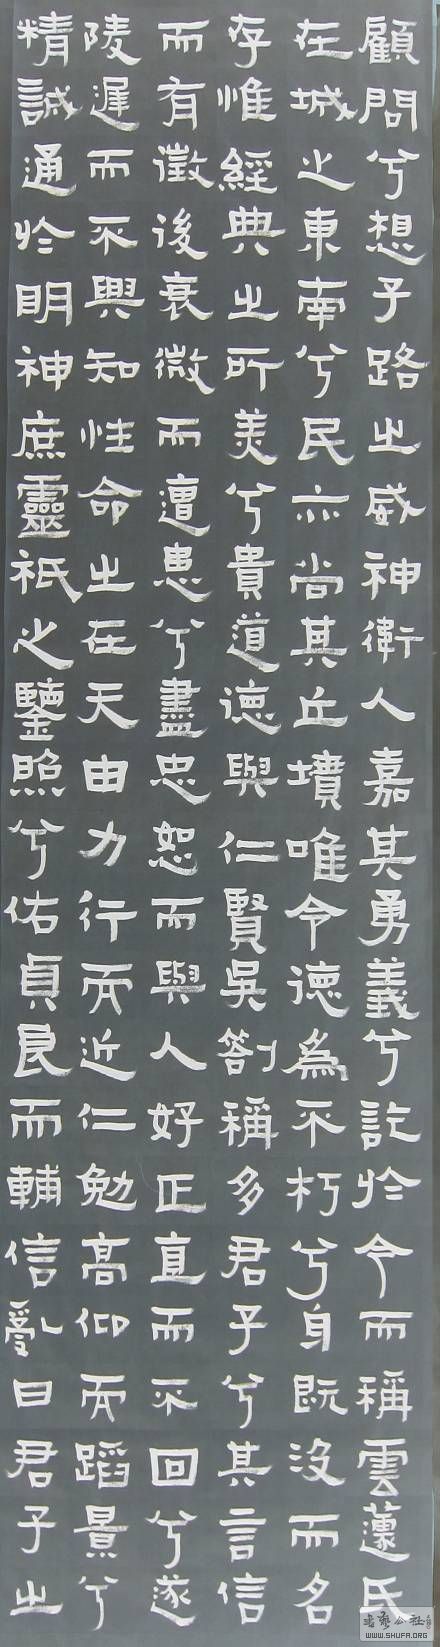 顧問兮想子路之威神衛人嘉其勇義兮訖於今而稱雲蘧氏
在城之東南兮民亦尚其丘墳唯令德為不朽兮身既沒而名
存惟經典之所美兮貴道德與仁賢吳劄稱多君子兮其言信
而有徵後衰微而遭患兮盡忠恕而與人好正直而不回兮遂
陵遲而不興知性命之在天由力行而近仁勉高仰而蹈景兮
精誠通於明神庶靈祇之鑒照兮佑貞良而輔信亂曰君子之
書藝公社
WWW.SHUFA.ORG